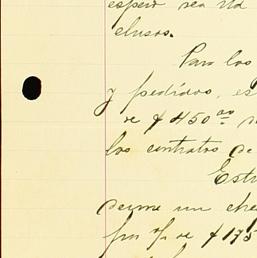 espero sea Ud
cluso.
Para los
y pedidos, es
de $ 450.00
los contratos de
Estu
derme un che
por % de $ 175